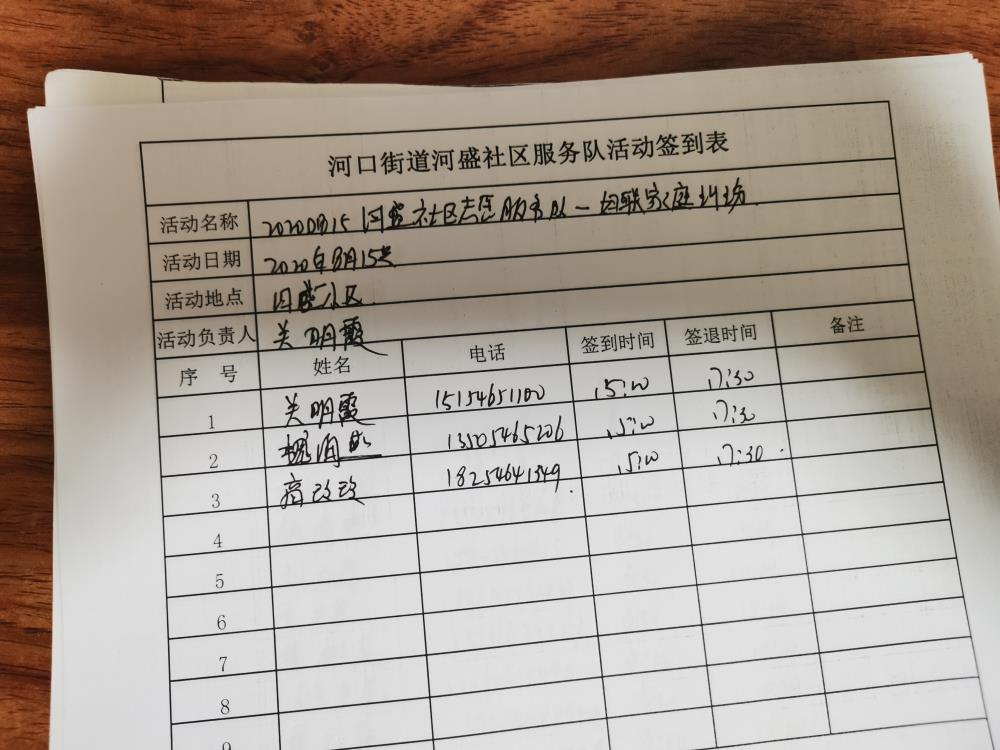 河口街道河盛社区服务队活动签到表
活动名称 20200815 河盛社区志愿服务队一妇联家庭训场
活动日期 2020年8月15号
活动地点 河盛小区
活动负责人 关明霞
序 号 姓名 电话 签到时间 签退时间 备注
1 关明霞 15154651100 15:00 17:30
2 13505465206 15:00 17:30
3 高改改 18254641349 15:00 17:30
4
5
6
7
8
9